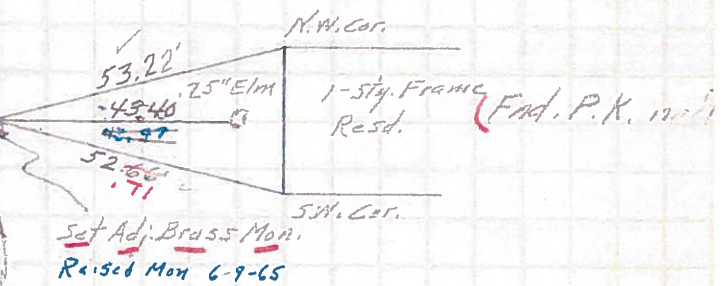 N.W. Cor.
53.22'
25" Elm
43.40
1-Sty. Frame
Resd.
(Fnd. P.K. nail
52.66
.71
S.W. Cor.
Set Adj. Brass Mon.
Raised Mon 6-9-65